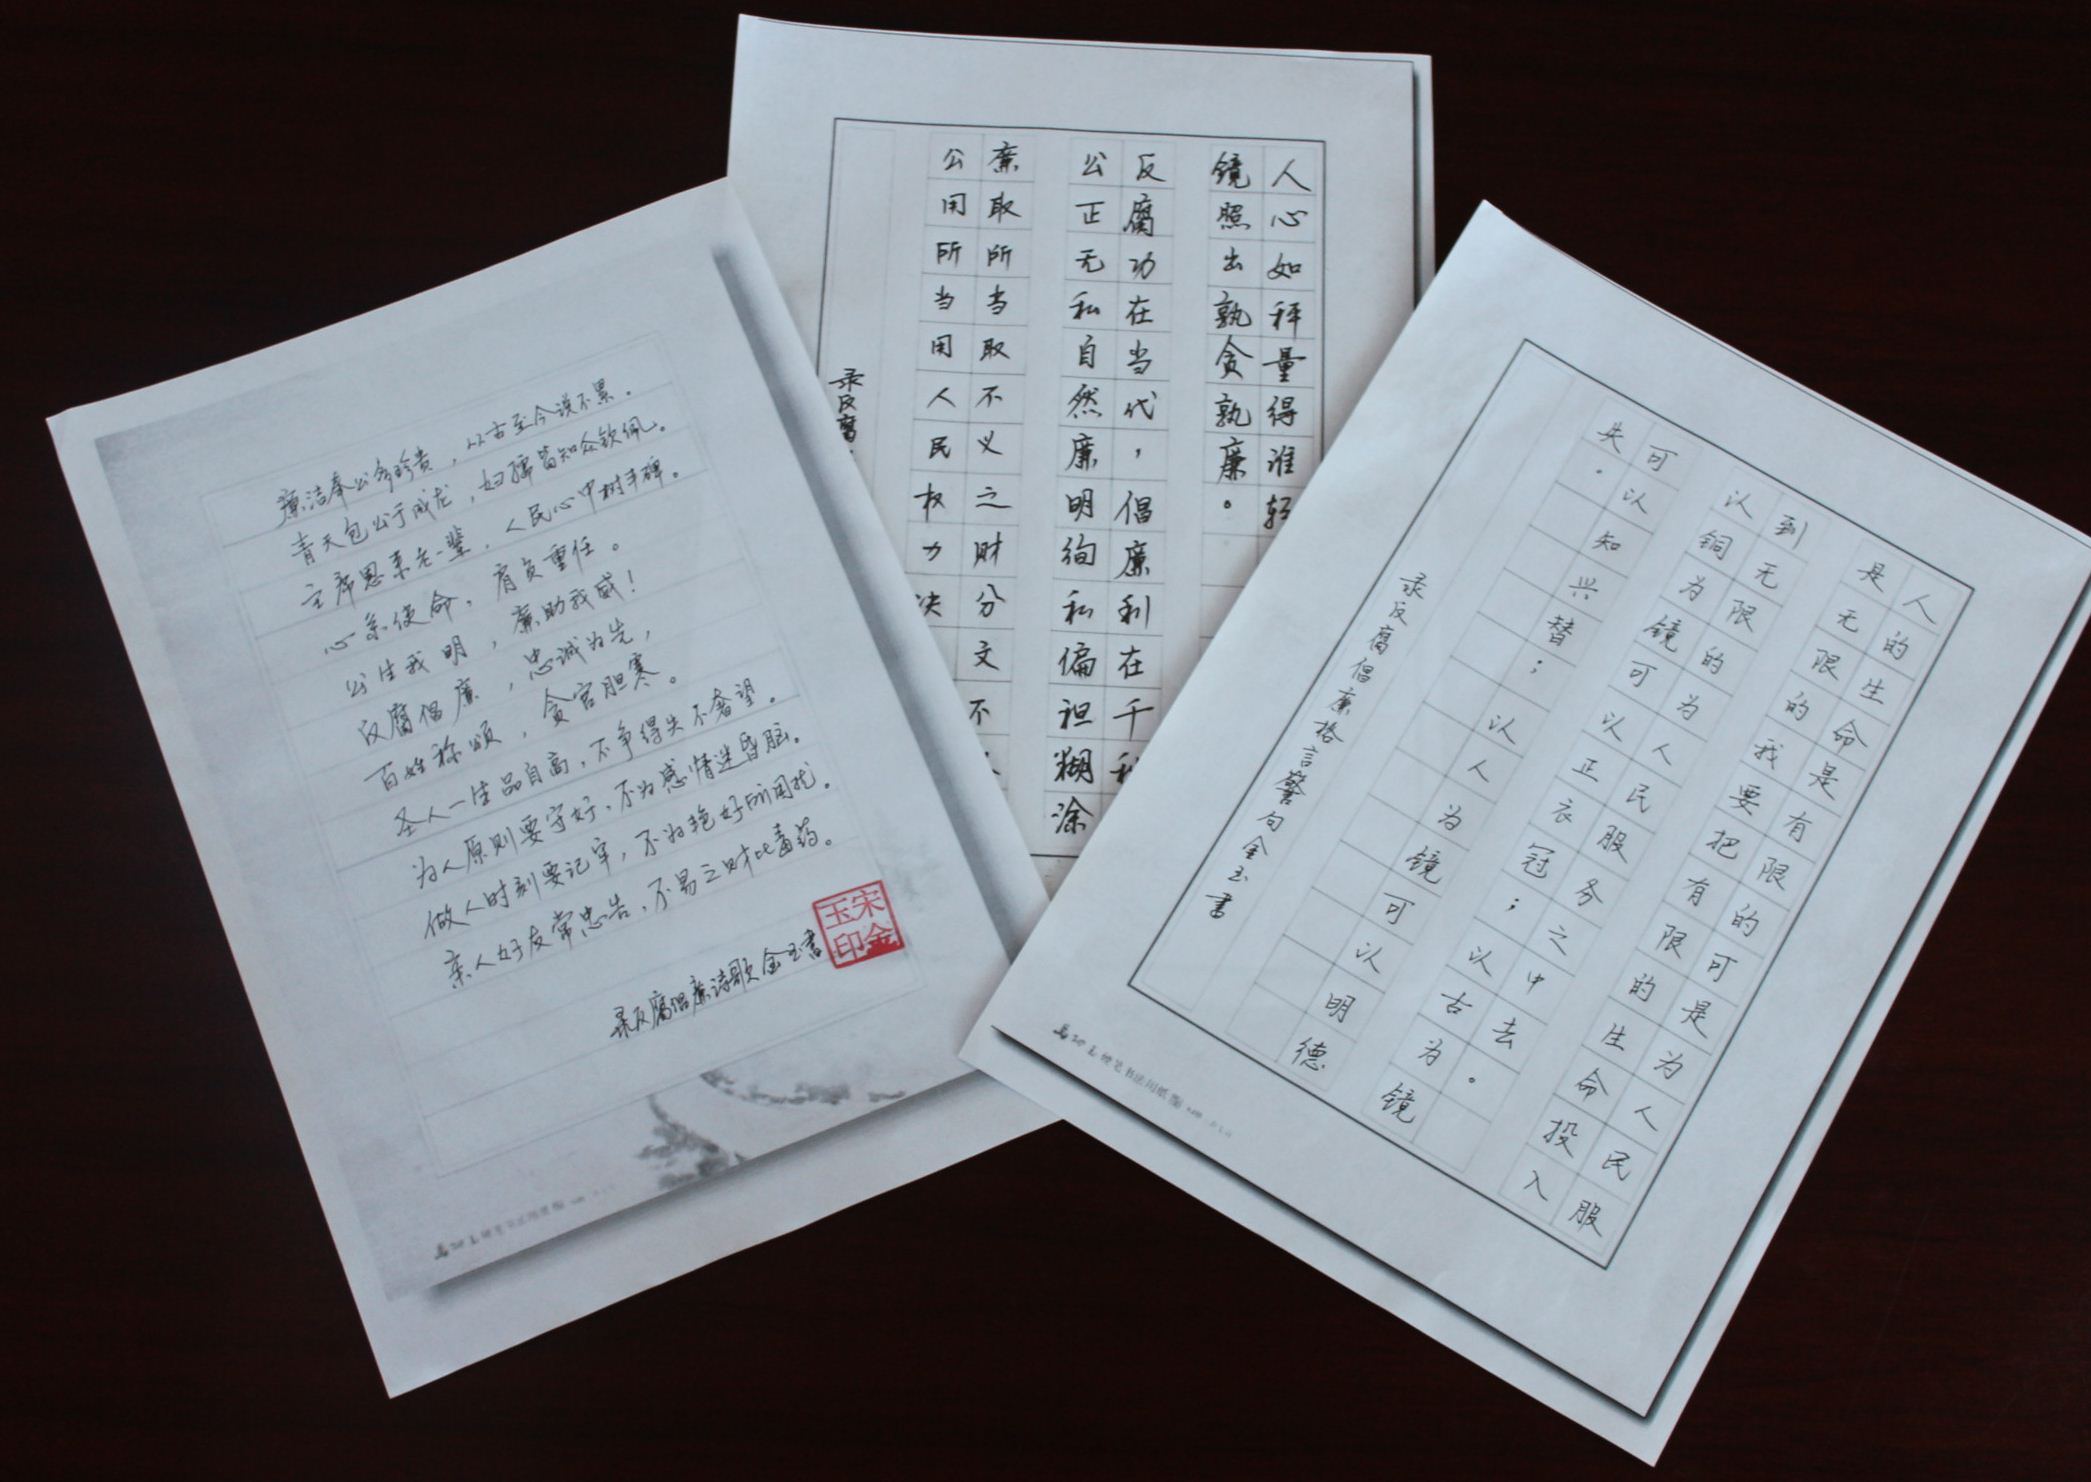 廉洁奉公多珍贵，从古至今说不累。
青天包公于成龙，妇孺皆知众钦佩。
主席恩来老一辈，人民心中树丰碑。
心系使命，肩负重任。
公生我明，廉助我威！
反腐倡廉，忠诚为先，
百姓称颂，贪官胆寒。
圣人一生品自高，不争得失不奢望。
为人原则要守好，不为感情迷昏脑。
做人时刻要记牢，不为艳好所困扰。
亲人好友常忠告，不易之财比毒药。
录反腐倡廉诗歌金玉书
宋金玉印
人心如秤量得谁轻
镜照出孰贪孰廉。
反腐功在当代，倡廉利在千秋
公正无私自然廉明徇私偏袒糊涂
廉取所当取不义之财分文不
公用所当用人民权力决
录反腐
人的生命是有限的可是为人民服
是无限的我要把有限的生命投入
到无限的为人民服务之中去。
以铜为镜可以正衣冠；以古为镜
可以知兴替；以人为镜可以明德
失。
录反腐倡廉格言警句金玉书